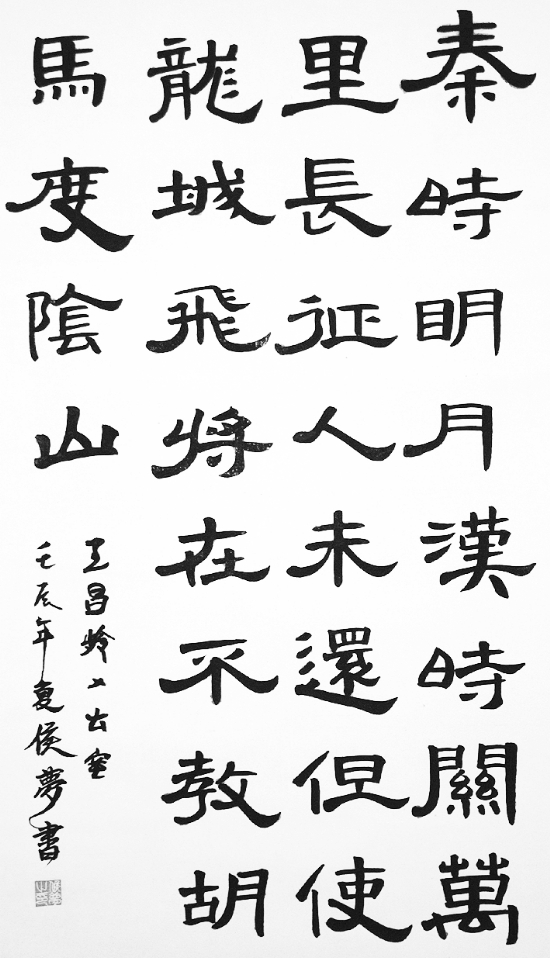 秦時明月漢時關萬
里長征人未還但使
龍城飛將在不教胡
馬度陰山
王昌齡出塞
壬辰年夏侯夢書